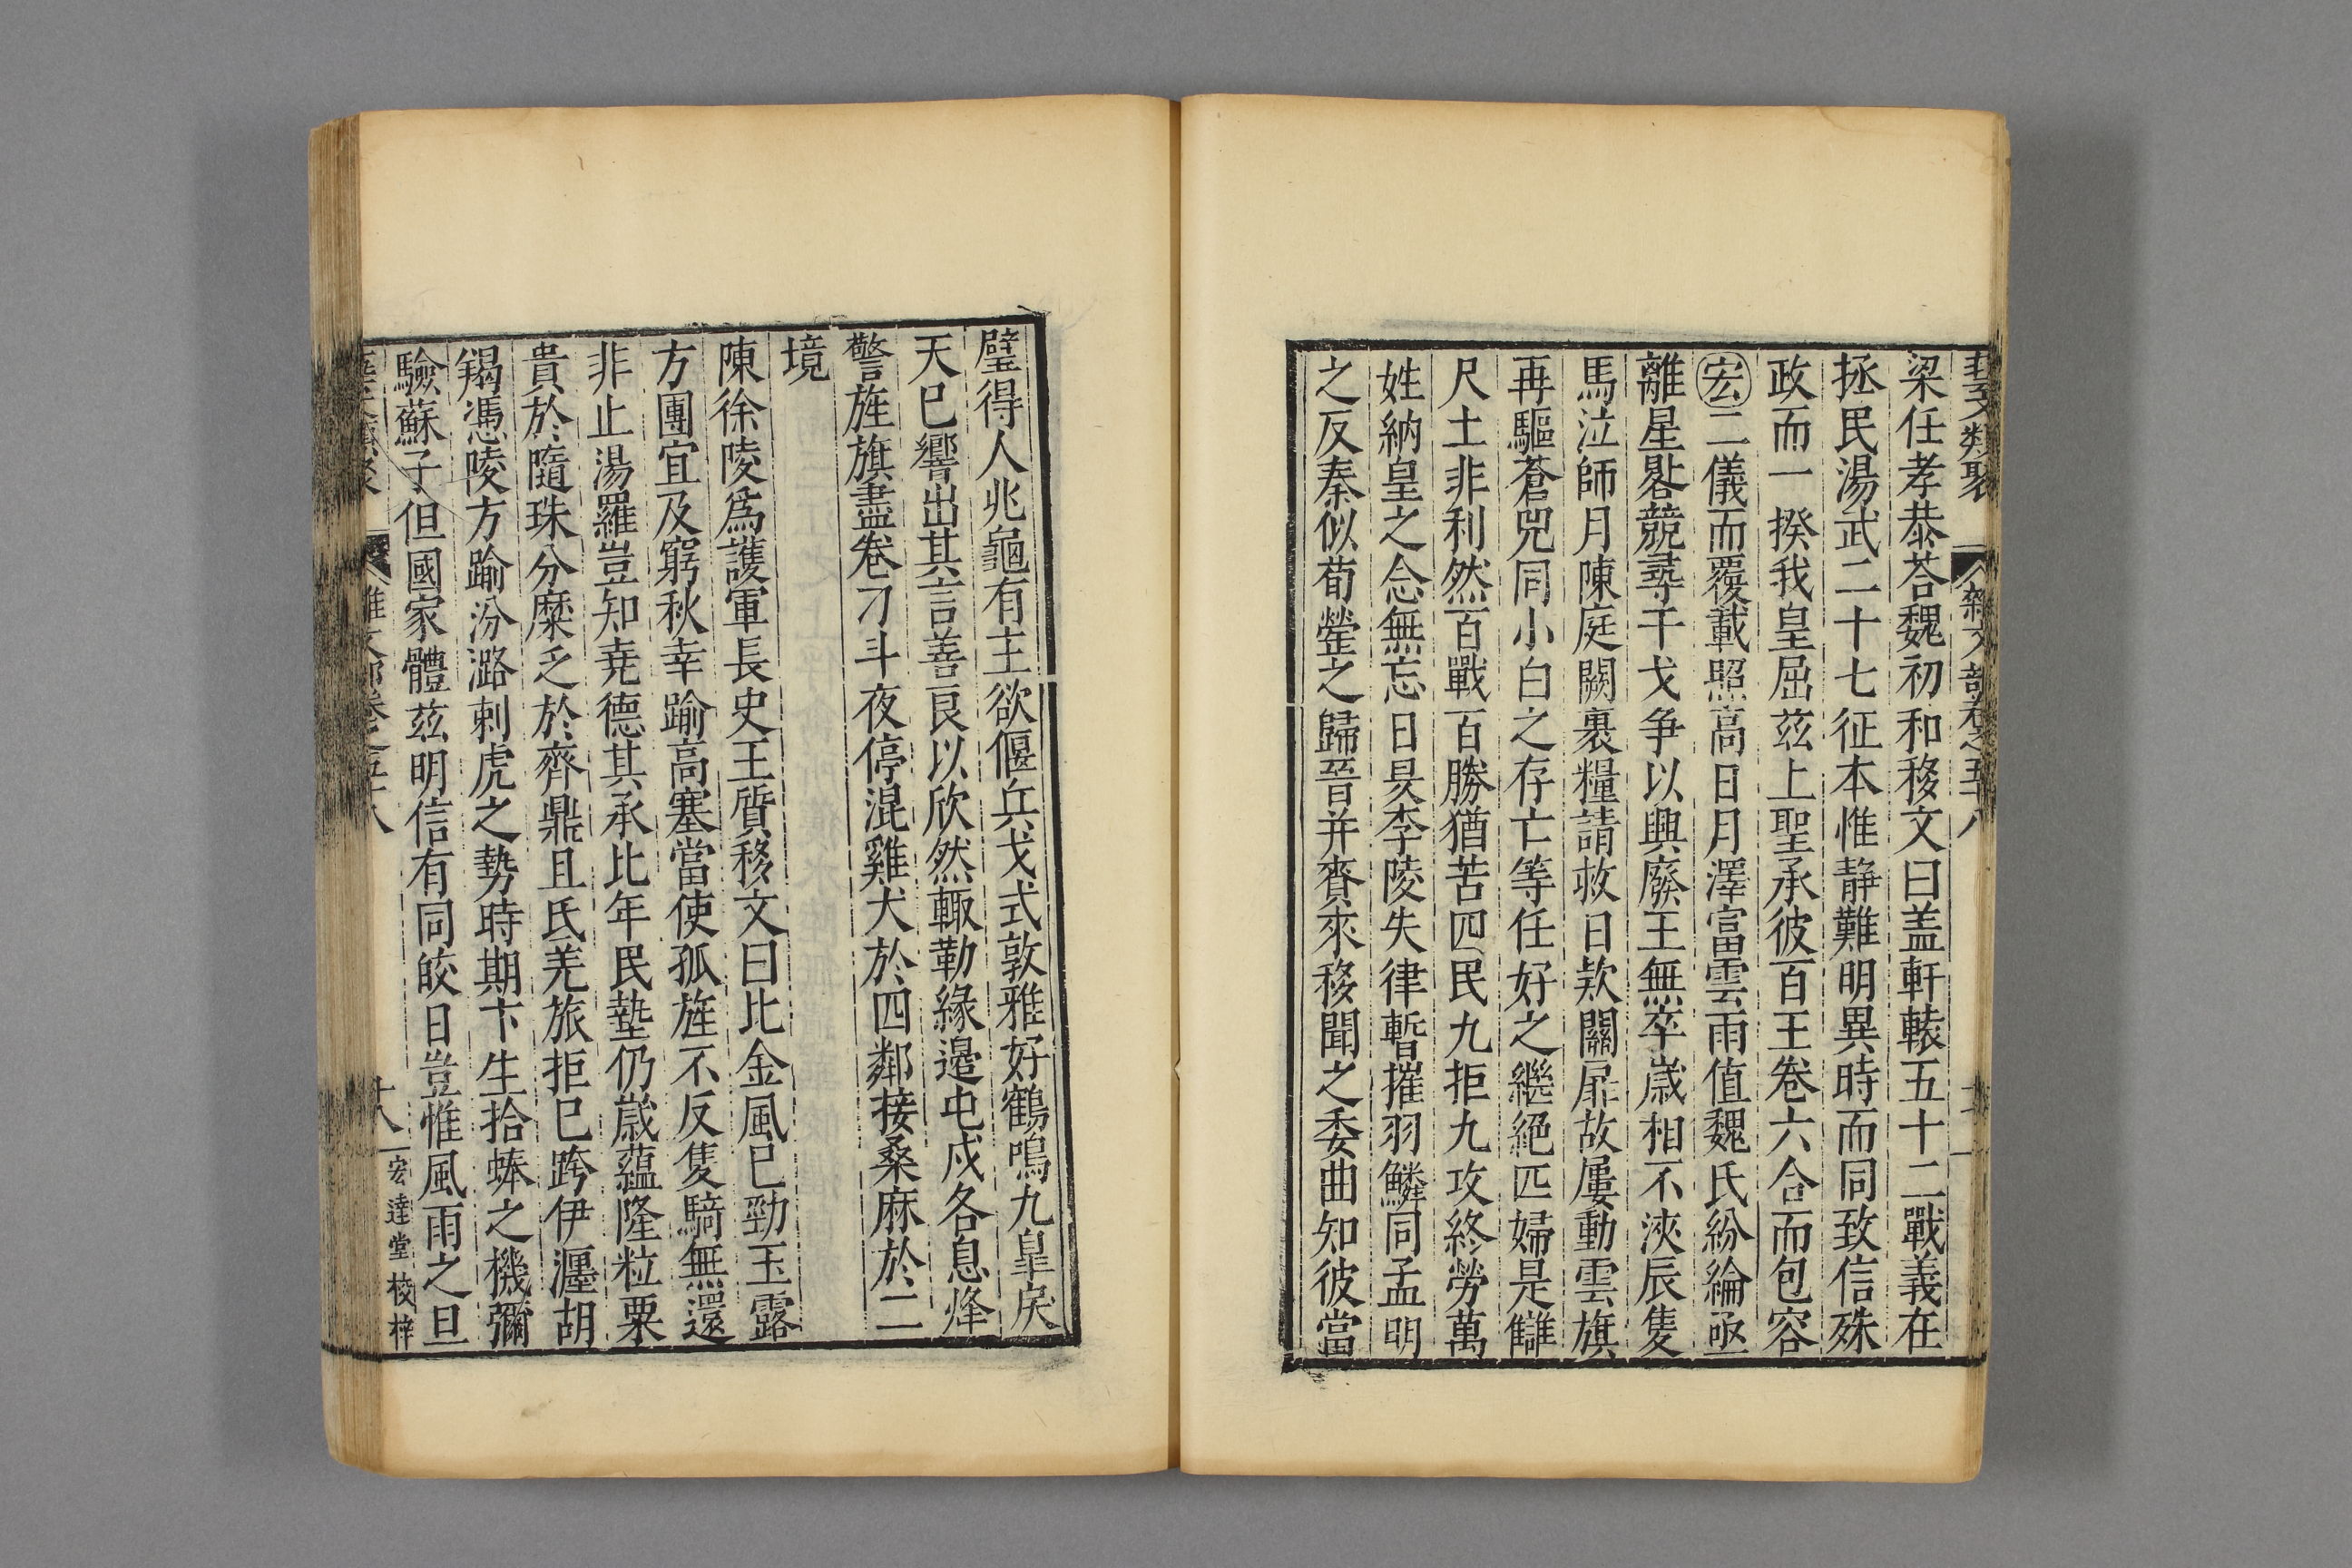 藝文類聚 雜文部卷之五十八
梁任孝恭荅魏初和移文曰盖軒轅五十二戰義在
拯民湯武二十七征本惟静難明異時而同致信殊
政而一揆我皇屈茲上聖承彼百王卷六合而包容
宏二儀而覆載照高日月澤富雲雨值魏氏紛綸亟
離星畧競尋干戈争以興廢王無卒歲相不浹辰隻
馬泣師月陳庭闕裹糧請救日欵關屝故屢動雲旗
再驅蒼兕同小白之存亡等任好之繼絕匹婦是讎
尺土非利然百戰百勝猶苦四民九拒九攻終勞萬
姓納皇之念無忘日昃李陵失律暫摧羽鱗同孟明
之反秦似荀罃之歸晉并賚來移聞之委曲知彼當
璧得人兆龜有主欲偃兵戈式敦雅好鶴鳴九皐戾
天巳響出其言善良以欣然輙勒緣邉屯戍各息烽
警旌旗盡卷刁斗夜停混雞犬於四鄰接桑麻於二
境
陳徐陵爲護軍長史王質移文曰比金風巳勁玉露
方團宜及窮秋幸踰高塞當使孤旌不反隻騎無還
非止湯羅豈知堯德其承比年民墊仍歲蘊隆粒粟
貴於隨珠分糜乏於齊鼎且氐羌旅拒巳跨伊瀍胡
羯憑陵方踰汾潞刺虎之勢時期卞生拾蜯之機彌
驗蘇子但國家體茲明信有同皎日豈惟風雨之旦
雜文部卷之五十八 十八 宏達堂校梓